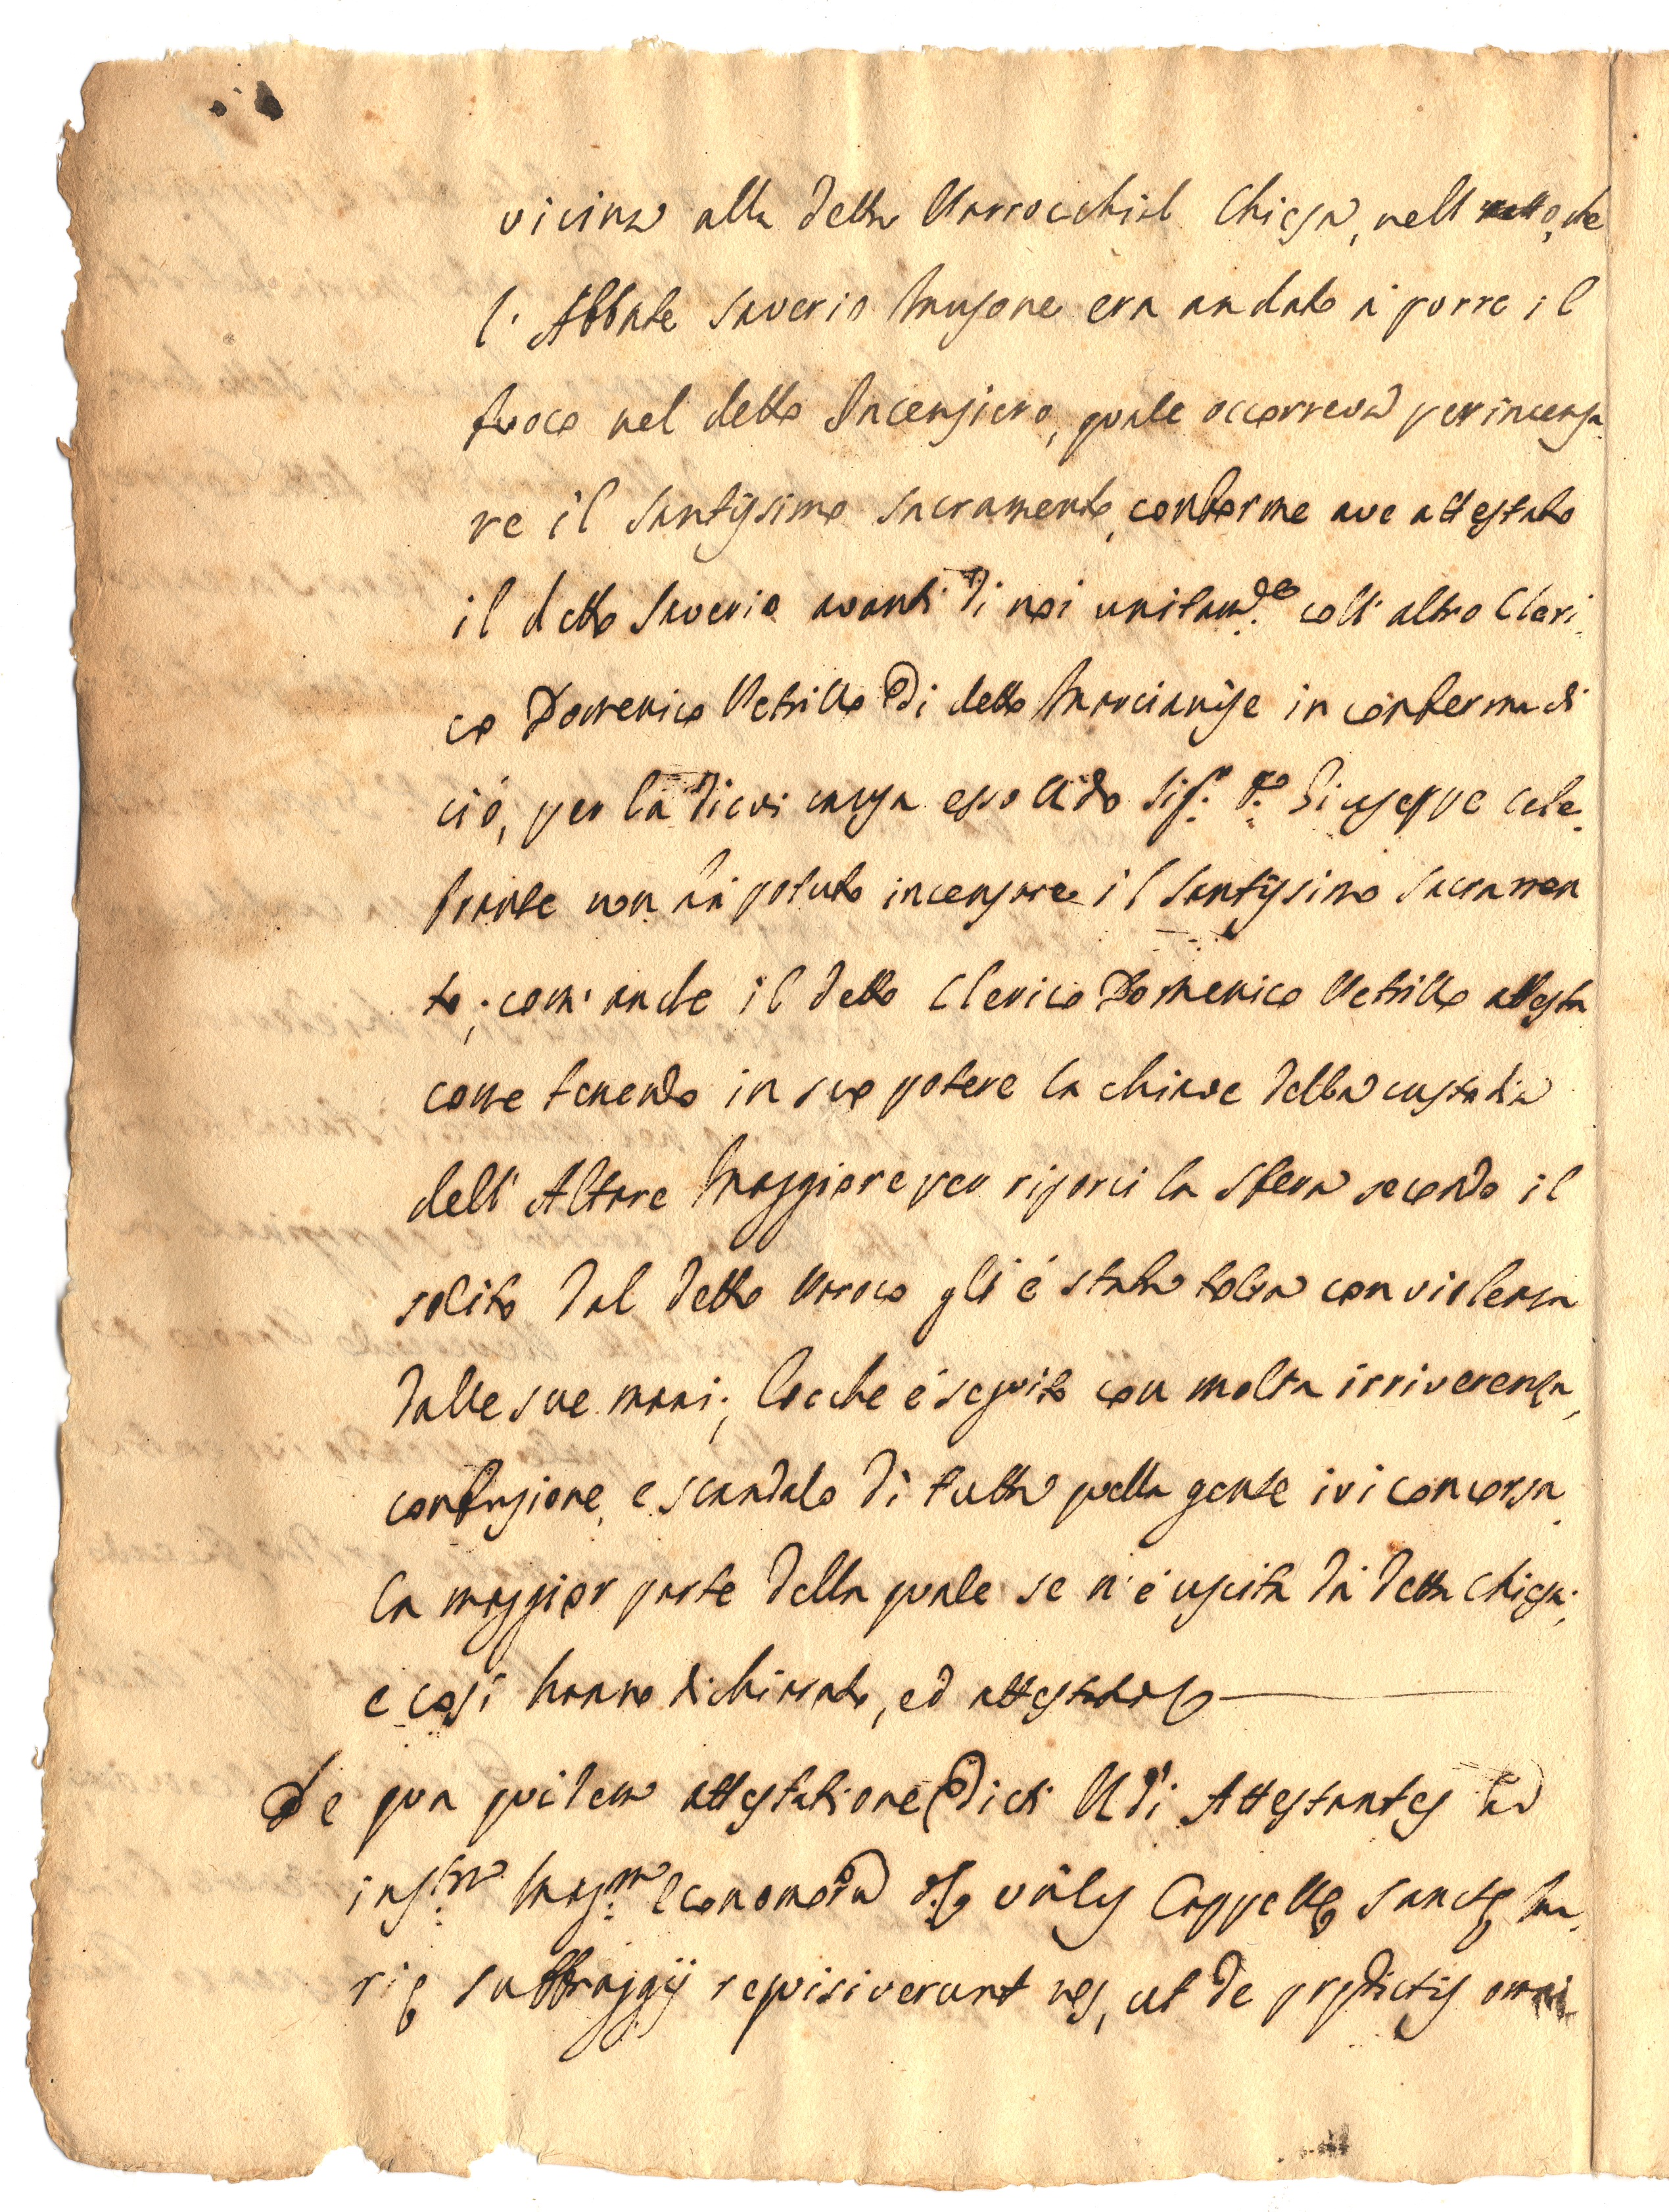 vicina alla detta Parrocchial Chiesa, nell che
l' Abbate Saverio Musone era andato à porre il
fuoco nel detto Incensiero, quale occorreva per incensa
re il Santissimo Sacramento, conforme ave attestato
il detto Saverio avanti di noi unitam.te coll' altro Cleri
co Domenico Petrillo di detto Marcianise in conferma di
ciò, per la di cui causa esso Sig.r D. Giuseppe Cele
brante non hà potuto incensare il Santissimo Sacramen
to; com' anche il detto Clerico Domenico Petrillo attesta
come tenendo in suo potere la chiave della custodia
dell' Altare Maggiore per riporci la sfera secondo il
solito dal detto Paroco gli è stata tolta con violenza
dalle sue mani; locche è seguito con molta irriverenza,
confusione, e scandalo di tutta quella gente ivi concorsa
la maggior parte della quale se n' è uscita dà detta Chiesa;
e così hanno dichiarato, ed attestato
De qua quidem attestatione dicti Attestantes ad
inst.m Mag.m Economorum Cappelle Sancte Ma
rie Suffraggij requisiverunt nos, ut de predictis omni